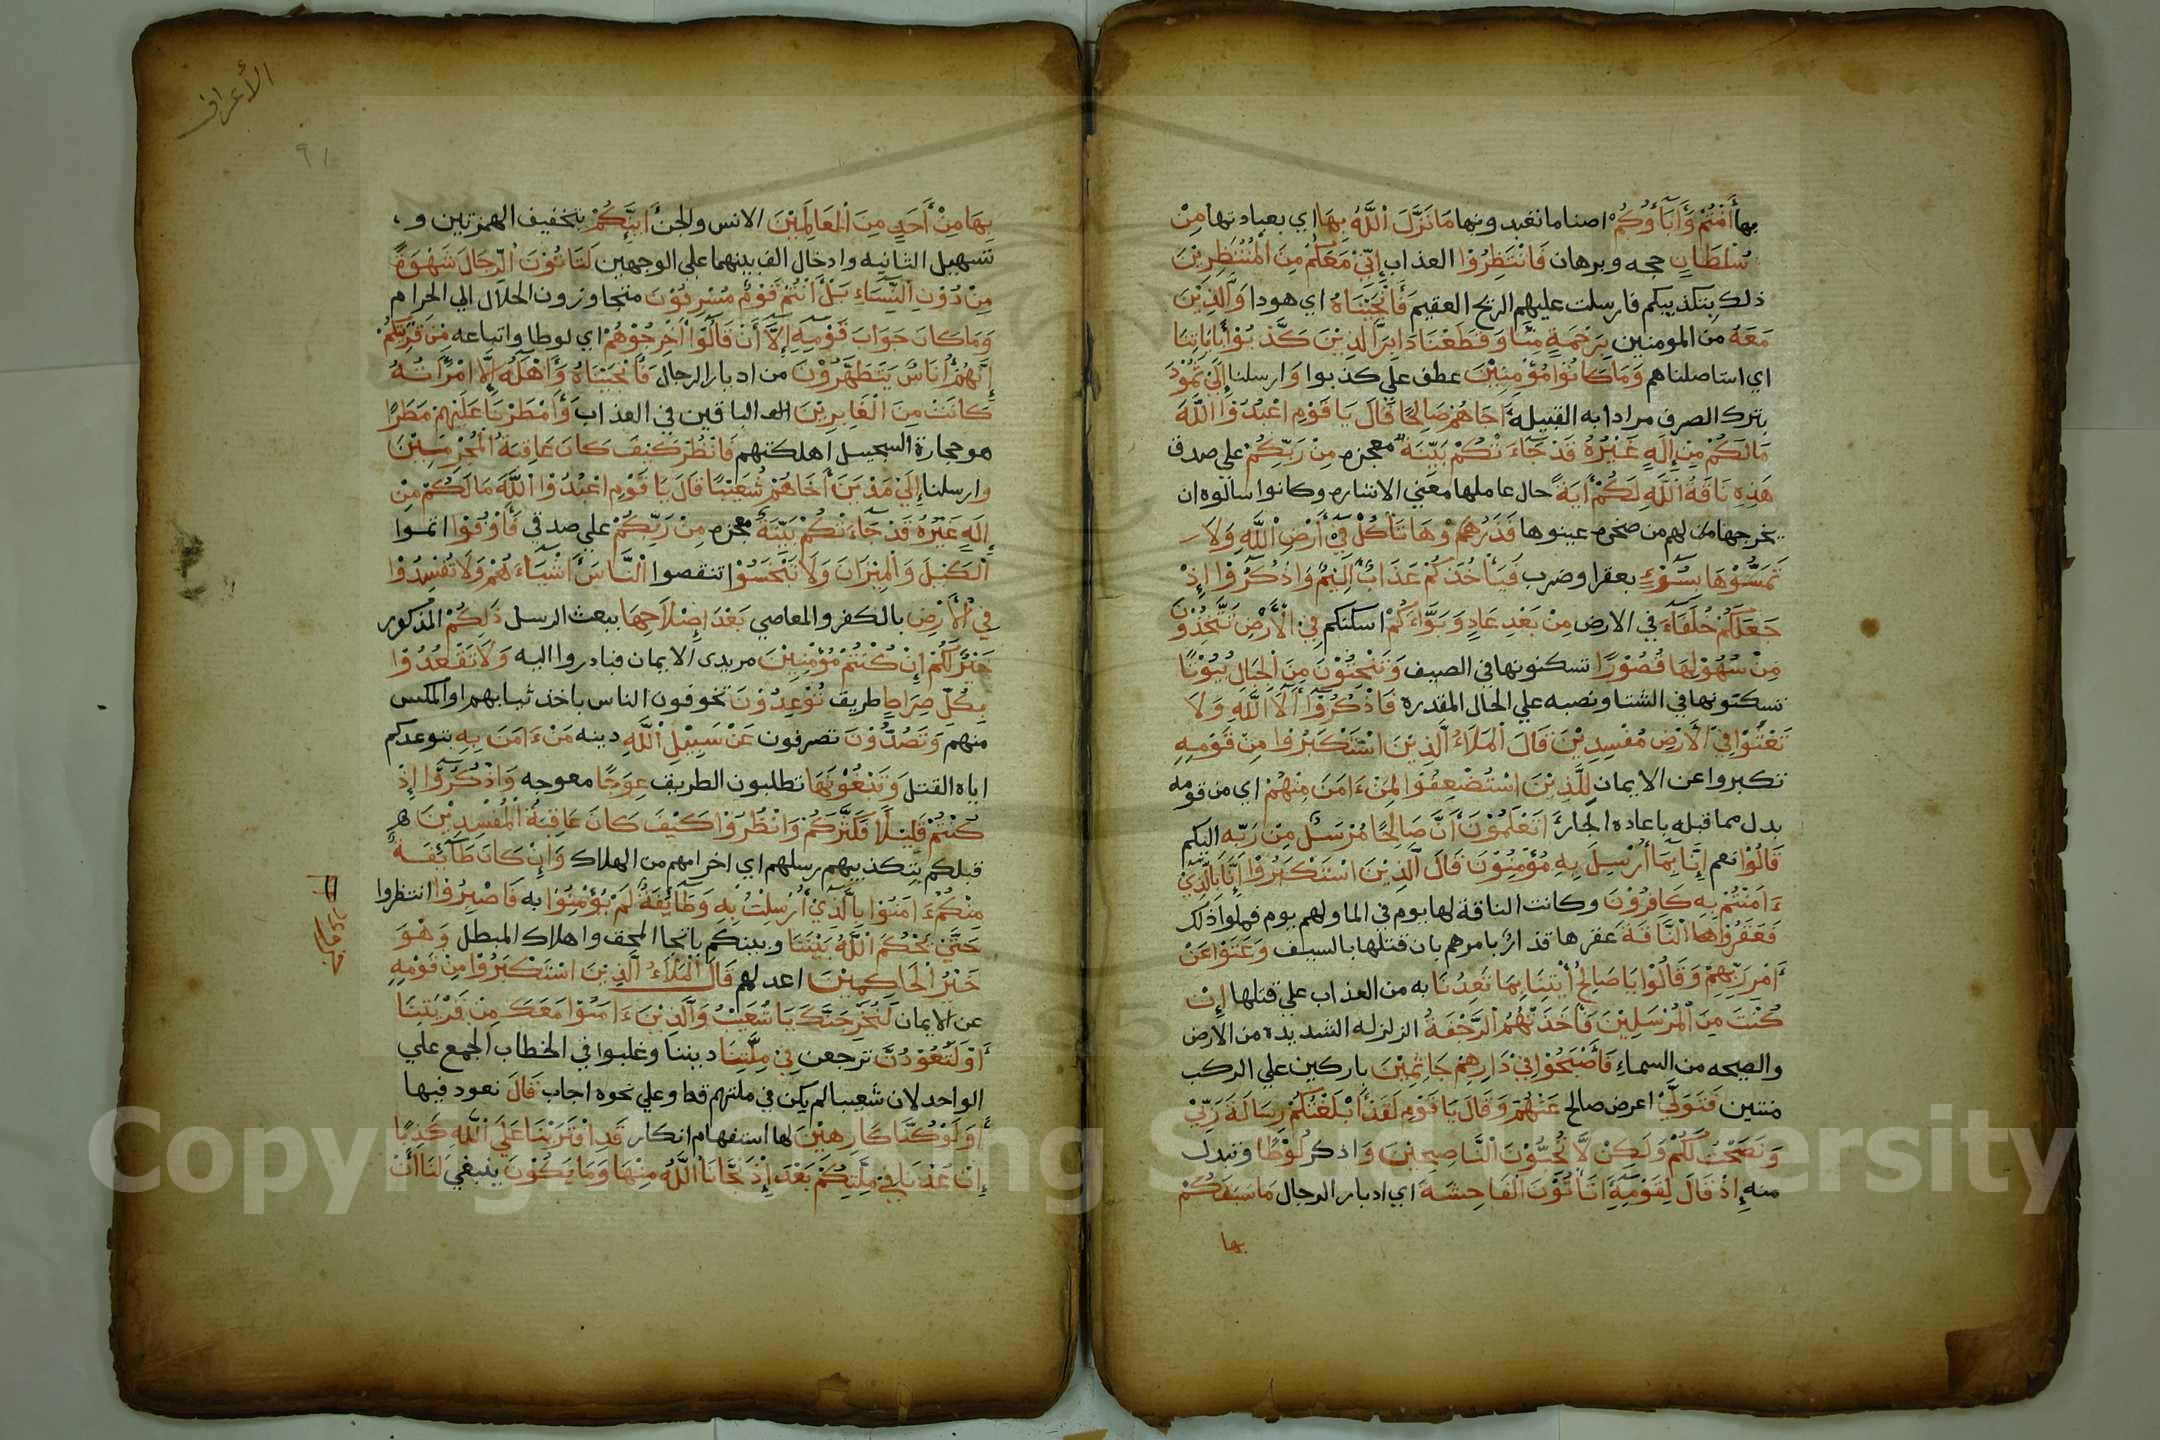 بها أَنْتُمْ وَأَبَآؤُكُمْ اصناما تعبدونها مَا نَزَّلَ اللَّهُ بِهَا اي بعبادتها مِنْ
سُلْطَانٍ حجه وبرهان فَانْتَظِرُوْا العذاب إِنِّيْ مَعَكُمْ مِنَ الْمُنْتَظِرِيْنَ
ذلك بتكذيبكم فارسلت عليهم الريح العقيم فَأَنْجَيْنَاهُ اي هودا وَالَّذِيْنَ
مَعَهُ من المومنين بِرَحْمَةٍ مِنَّا وَقَطَعْنَا دَابِرَ الَّذِيْنَ كَذَّبُوْا بِأَيَاتِنَا
اي استاصلناهم وَمَا كَانُوْا مُؤْمِنِيْنَ عطف علي كذبوا وَارسلنا إِلَيْ ثَمُوْدَ
بترك الصرف مرادا به القبيلة أَخَاهُمْ صَالِحًا قَالَ يَا قَوْمِ اعْبُدُوْا اللَّهَ
مَالَكُمْ مِنْ إِلَهٍ غَيْرُهُ قَدْ جَآءَتْكُمْ بَيِّنَةٌ معجزه مِنْ رَبِّكُمْ علي صدقي
هَذِهِ نَاقَةُ اللَّهِ لَكُمْ أَيَةً حال عاملها معني الاشاره وكانوا سالوه ان
يخرجها لهم من صخره عينوها فَذَرُوْهَا تَأْكُلْ فِيْ أَرْضِ اللَّهِ وَلَا
تَمَسُّوْهَا بِسُوْءٍ بعقر او ضرب فَيَأْخُذَكُمْ عَذَابٌ أَلِيْمٌ وَاذْكُرُوْا إِذْ
جَعَلَكُمْ خُلَفَآءَ في الارض مِنْ بَعْدِ عَادٍ وَبَوَّأَكُمْ اسكنكم فِيْ الْأَرْضِ تَتَّخِذُوْنَ
مِنْ سُهُوْلِهَا قُصُوْرًا تسكنونها في الصيف وَتَنْحِتُوْنَ مِنَ الْجِبَالِ بُيُوْتًا
تسكنونها في الشتا ونصبه علي الحال المقدره فَاذْكُرُوْآ أَلَآءَ اللَّهِ وَلَا
تَعْثَوْا فِيْ الْأَرْضِ مُفْسِدِيْنَ قَالَ الْمَلَأُ الَّذِيْنَ اسْتَكْبَرُوْا مِنْ قَوْمِهِ
تكبروا عن الايمان لِلَّذِيْنَ اسْتُضْعِفُوْا لِمَنْ ءَامَنَ مِنْهُمْ اي من قومه
بدل مما قبله باعاده الجار أَتَعْلَمُوْنَ أَنَّ صَالِحًا مُرْسَلٌ مِنْ رَبِّهِ اليكم
قَالُوْا نعم إِنَّا بِمَا أُرْسِلَ بِهِ مُؤْمِنُوْنَ قَالَ الَّذِيْنَ اسْتَكْبَرُوْا إِنَّا بِالَّذِيْ
ءَامَنْتُمْ بِهِ كَافِرُوْنَ وكانت الناقة لها يوم في الما ولهم يوم فملوا ذلك
فَعَقَرُوْا النَّاقَةَ عقرها قذار بامرهم بان قتلها بالسيف وَعَتَوْا عَنْ
أَمْرِ رَبِّهِمْ وَقَالُوْا يَا صَالِحُ أْتِنَا بِمَا تَعِدُنَا به من العذاب علي قتلها إِنْ
كُنْتَ مِنَ الْمُرْسَلِيْنَ فَأَخَذَتْهُمُ الرَّجْفَةُ الزلزله الشديده من الارض
والصيحه من السماء فَأَصْبَحُوْا فِيْ دَارِهِمْ جَاثِمِيْنَ باركين علي الركب
ميتين فَتَوَلَّيْ اعرض صالح عَنْهُمْ وَقَالَ يَا قَوْمِ لَقَدْ أَبْلَغْتُكُمْ رِسَالَةَ رَبِّيْ
وَنَصَحْتُ لَكُمْ وَلَكِنْ لَا تُحِبُّوْنَ النَّاصِحِيْنَ وَاذكر لُوْطًا وتبدل
منه إِذْ قَالَ لِقَوْمِهِ أَتَأْتُوْنَ الْفَاحِشَةَ اي ادبار الرجال مَا سَبَقَكُمْ
بها
الأعراف
٩١
بِهَا مِنْ أَحَدٍ مِنَ الْعَالَمِيْنَ الانس والجن أَإِنَّكُمْ بتخفيف الهمزتين و
تسهيل الثانيه وادخال الف بينهما علي الوجهين لَتَأْتُوْنَ الرِّجَالَ شَهْوَةً
مِنْ دُوْنِ النِّسَآءِ بَلْ أَنْتُمْ قَوْمٌ مُسْرِفُوْنَ متجاوزون الحلال الي الحرام
وَمَا كَانَ جَوَابَ قَوْمِهِ إِلَّآ أَنْ قَالُوْآ أَخْرِجُوْهُمْ اي لوطا واتباعه مِنْ قَرْيَتِكُمْ
إِنَّهُمْ أُنَاسٌ يَتَطَهَّرُوْنَ من ادبار الرجال فَأَنْجَيْنَاهُ وَأَهْلَهُ إِلَّا امْرَأَتَهُ
كَانَتْ مِنَ الْغَابِرِيْنَ الباقين في العذاب وَأَمْطَرْنَا عَلَيْهِمْ مَطَرًا
هو حجارة السجيل اهلكتهم فَانْظُرْ كَيْفَ كَانَ عَاقِبَةُ الْمُجْرِمِيْنَ
وارسلنا إِلَيْ مَدْيَنَ أَخَاهُمْ شُعَيْبًا قَالَ يَا قَوْمِ اعْبُدُوْا اللَّهَ مَا لَكُمْ مِنْ
إِلَهٍ غَيْرُهُ قَدْ جَآءَتْكُمْ بَيِّنَةٌ معجزه مِنْ رَبِّكُمْ علي صدقي فَأَوْفُوْا اتموا
الْكَيْلَ وَالْمِيْزَانَ وَلَا تَبْخَسُوْا تنقصوا النَّاسَ أَشْيَآءَهُمْ وَلَا تُفْسِدُوْا
فِيْ الْأَرْضِ بالكفر والمعاصي بَعْدَ إِصْلَاحِهَا ببعث الرسل ذَلِكُمْ المذكور
خَيْرٌ لَكُمْ إِنْ كُنْتُمْ مُؤْمِنِيْنَ مريدي الايمان فبادروا اليه وَلَا تَقْعُدُوْا
بِكُلِّ صِرَاطٍ طريق تُوْعِدُوْنَ تخوفون الناس باخذ ثيابهم او المكس
منهم وَتَصُدُّوْنَ تصرفون عَنْ سَبِيْلِ اللَّهِ دينه مَنْ ءَامَنَ بِهِ بتوعدكم
اياه القتل وَتَبْغُوْنَهَا تطلبون الطريق عِوَجًا معوجه وَاذْكُرُوْا إِذْ
كُنْتُمْ قَلِيْلًا فَكَثَّرَكُمْ وَانْظُرُوْا كَيْفَ كَانَ عَاقِبَةُ الْمُفْسِدِيْنَ
قبلكم بتكذيبهم رسلهم اي اخر امهم من الهلاك وَإِنْ كَانَ طَآئِفَةٌ
مِنْكُمْ ءَامَنُوْا بِالَّذِيْ أُرْسِلْتُ بِهِ وَطَآئِفَةٌ لَمْ يُؤْمِنُوْا به فَاصْبِرُوْا انتظروا
حَتَّيْ يَحْكُمَ اللَّهُ بَيْنَنَا وبينكم بانجا المحق واهلاك المبطل وَهُوَ
خَيْرُ الْحَاكِمِيْنَ اعدلهم قَالَ الْمَلَأُ الَّذِيْنَ اسْتَكْبَرُوْا مِنْ قَوْمِهِ
عن الايمان لَنُخْرِجَنَّكَ يَا شُعَيْبُ وَالَّذِيْنَ ءَامَنُوْا مَعَكَ مِنْ قَرْيَتِنَا
أَوْ لَتَعُوْدُنَّ ترجعن فِيْ مِلَّتِنَا ديننا وغلبوا في الخطاب الجمع علي
الواحد لان شعيبا لم يكن في ملتهم قط وعلي نحوه اجاب قَالَ نعود فيها
أَوَلَوْ كُنَّا كَارِهِيْنَ لها استفهام انكار قَدِ افْتَرَيْنَا عَلَيْ اللَّهِ كَذِبًا
إِنْ عُدْنَا فِيْ مِلَّتِكُمْ بَعْدَ إِذْ نَجَّانَا اللَّهُ مِنْهَا وَمَا يَكُوْنُ ينبغي لَنَا أَنْ
Copyright © King Saud University